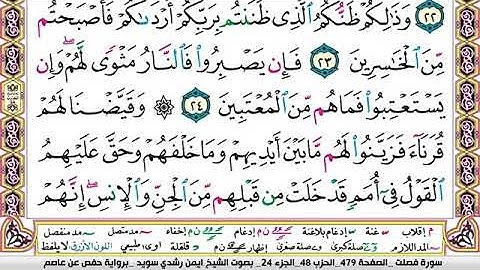 ﴿٢٢﴾ وَذَٰلِكُمْ ظَنُّكُمُ ٱلَّذِى ظَنَنتُم بِرَبِّكُمْ أَرْدَىٰكُمْ فَأَصْبَحْتُم
مِّنَ ٱلْخَٰسِرِينَ ﴿٢٣﴾ فَإِن يَصْبِرُوا۟ فَٱلنَّارُ مَثْوًى لَّهُمْ ۖ وَإِن
يَسْتَعْتِبُوا۟ فَمَا هُم مِّنَ ٱلْمُعْتَبِينَ ﴿٢٤﴾ ۞ وَقَيَّضْنَا لَهُمْ
قُرَنَآءَ فَزَيَّنُوا۟ لَهُم مَّا بَيْنَ أَيْدِيهِمْ وَمَا خَلْفَهُمْ وَحَقَّ عَلَيْهِمُ
ٱلْقَوْلُ فِىٓ أُمَمٍ قَدْ خَلَتْ مِن قَبْلِهِم مِّنَ ٱلْجِنِّ وَٱلْإِنسِ ۖ إِنَّهُمْ
م إقلاب غنة إدغام بلاغنة ن م إدغام ن م إخفاء مد متصل مد منفصل
المد اللازم صلة كبرى صلة صغرى إظهار ن م قلقلة اوى طبيعي اللون الأزرق لا يلفظ
سورة فصلت _ الصفحة 479_ الحزب 48_ الجزء 24_ بصوت الشيخ ايمن رشدي سويد _ برواية حفص عن عاصم